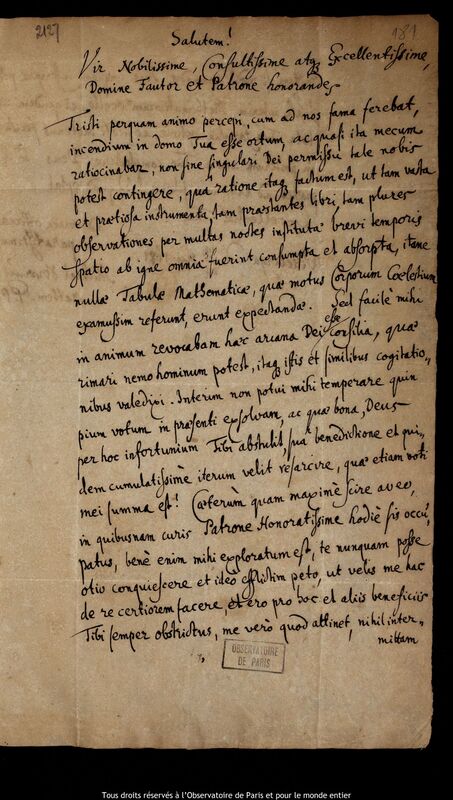 2127
181
Salutem!
Vir Nobilissime, Consultissime atq; Excellentissime,
Domine Fautor et Patrone honorande,
Tristi perquam animo percepi, cum ad nos fama ferebat,
incendium in domo Tua esse ortum, ac quasi ita mecum
ratiocinabar, non sine singulari Dei permissu tale nobis
potest contingere, quâ ratione itaq; factum est, ut tam vasta
et prætiosa instrumenta, tam præstantes libri, tam plures
observationes per multas noctes institutæ brevi temporis
spatio ab igne omnia fuerint consumpta et absorpta, itane
nullæ Tabulæ Mathematicæ, quæ motus Corporum Cœlestium
examussim referunt, erunt expectandæ. Sed facilè mihi
in animum revocabam hæc arcana Dei esse consilia, quæ
rimari nemo hominum potest, itaq; istis et similibus cogitatio-
nibus valedixi. Interim non potui mihi temperare quin
pium votum in præsenti exsolvam, ac quæ bona, Deus
per hoc infortunium Tibi abstulit, suâ benedictione et qui-
dem cumulatissimè iterum velit resarcire, quæ etiam voti
mei summa est! Cæterùm quam maximè scire aveo,
in quibusnam curis Patrone Honoratissime hodiè sis occu-
patus, benè enim mihi exploratum est, te nunquam posse
otio conquiescere et ideò efflictim peto, ut velis me hac
de re certiorem facere, et ero pro hoc et aliis beneficiis
Tibi semper obstrictus, me verò quod attinet, nihil inter-
mittam
OBSERVATOIRE
DE PARIS
Tous droits réservés à l'Observatoire de Paris et pour le monde entier